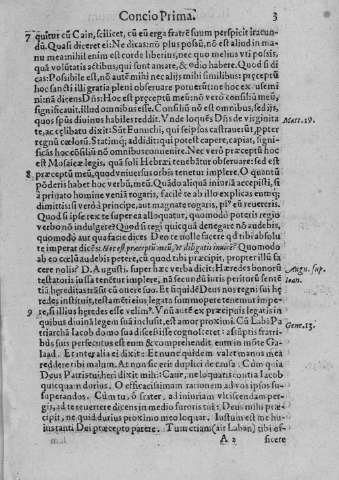 Concio Prima. 3
7 quitur cũ Cain, scilicet, cũ eũ erga fratrẽ suum perspicit iracun-
dũ. Quasi diceret ei: Ne dicas: nõ plus possũ, nõ est aliud in ma-
nu mea: nihil enim est corde liberius, nec quo melius vti possis,
quã volũtatis actibus, qui sunt amare, & odio habere. Quod si di
cas: Possibile est, nõ autẽ mihi nec alijs mihi similibus: præceptũ
hoc sancti illi gratia pleni obseruare potuerũt: ne hoc ex- usemi
ni: nã dicens Dñs: Hoc est præceptũ meũ: nõ verò consiliũ meũ,
significauit, illud omnibus esse. Consiliũ nõ est omnibus, sed ijs,
quos spũs diuinus habiles reddit. Vnde loquẽs Dñs de virginita
te, ac cælibatu dixit: Sũt Eunuchi, qui seipsos castrauerũt, ꝓpter Matt. 19.
regnũ cœlorũ. Statimq; addidit: qui potest capere, capiat, signi-
ficãs hoc cõsiliũ nõ omnibus conuenire. Nec verò præceptũ hoc
est Mosaicæ legis, quã soli Hebræi tenebãtur obseruare: sed est
8 præceptũ meũ, quod vniuersus orbis tenetur implere. O quantũ
põderis habet hoc verbũ, meũ. Quãdo aliquã iniuriã accepisti, si
à priuato homine veniã rogaris, facilè te ab illo explicas: eumq;
dimittis: si verò à principe, aut magnate rogaris, pl' eũ reuereris.
Quod si ipse rex te super ea alloquatur, quomodo poteris regio
verbo nõ indulgere? Quod si regi quicquã denegare nõ audeas,
quomodo aut qua facie dicis Deo te nolle facere qd tibi absolu
tè imperat dicẽs. Hoc est præceptũ meũ, vt diligatis inuicẽ? Quomodo
ab eo cœli audebis petere, cũ quod tibi præcipit, propter illũ fa
cere nolis? D. Augusti. super hæc verba dicit: Hæredes bonorũ Augu. sup.
testatoris iussa tenẽtur implere, nã secundũ iuris peritorũ sentẽ Ioan.
tiã hæreditas trãsit cũ onere suo. Et si quidẽ Deus nos regni sui hę
redes instituit, testamẽti eius legata summopere tenemur impe-
9 re, si illius hęredes esse velim⁹. Vnũ autẽ ex præcipuis legatis in
quibus diuinã legem suã inclusit, est amor proximi. Cũ Labã Pa
triarchã Iacob fuisse à sua domo discessisse cognosceret: assũptis fratri- Gent. 13.
bus suis persecutus est eum & comprehendit eum in mõte Ga-
laad. Et inter alia ei dixit: Et nunc quidem valet manus mea
reddere tibi malum. At non sic eris duplici de causa. Cùm quia
Deus Patris tui heri dixit mihi: Caue, ne loquaris contra Iacob
quicquam durius. O efficacissimam rationem ad vos ipsos su-
superandos. Cùm tu, ô frater, ad iniuriam vlciscendam per-
gis, ad te reuertere dicens in medio furoris tui: Deus mihi præ-
cipit, ne quid durius proximo meo loquar. Iustum est me hu-
ius tanti Dei præcepto parere. Tum etiam (ait Laban) tibi of-
A 2 ficere